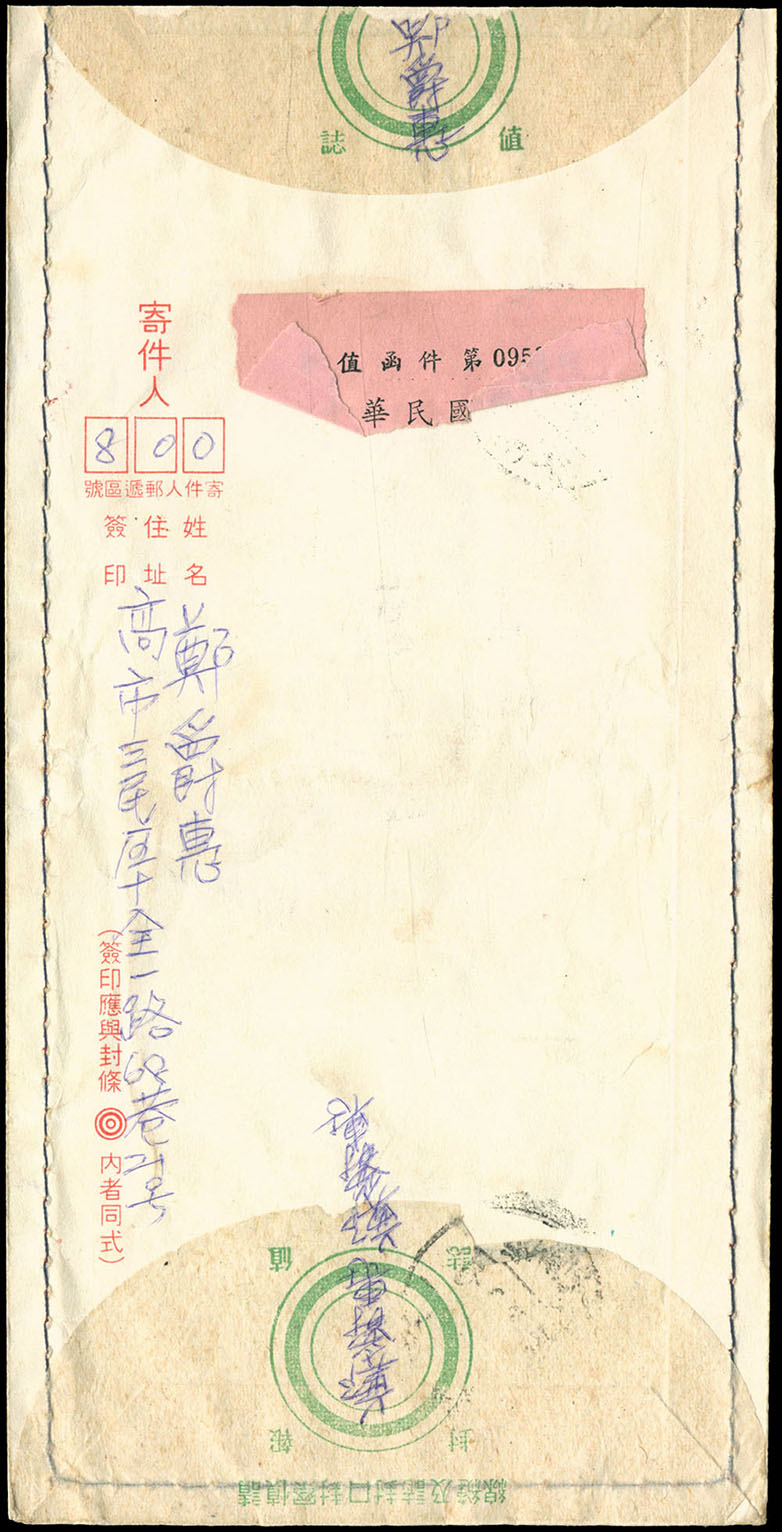 鄭爵惠
誌 值
值函件第095
華民國
寄件人
800
寄件人郵遞區號
姓名
住址
簽印
鄭爵惠
高市三民区十全一路68巷21号
(簽印應與封條◎內者同式)
值 誌
報 封
請慎密封口封誌及縫線